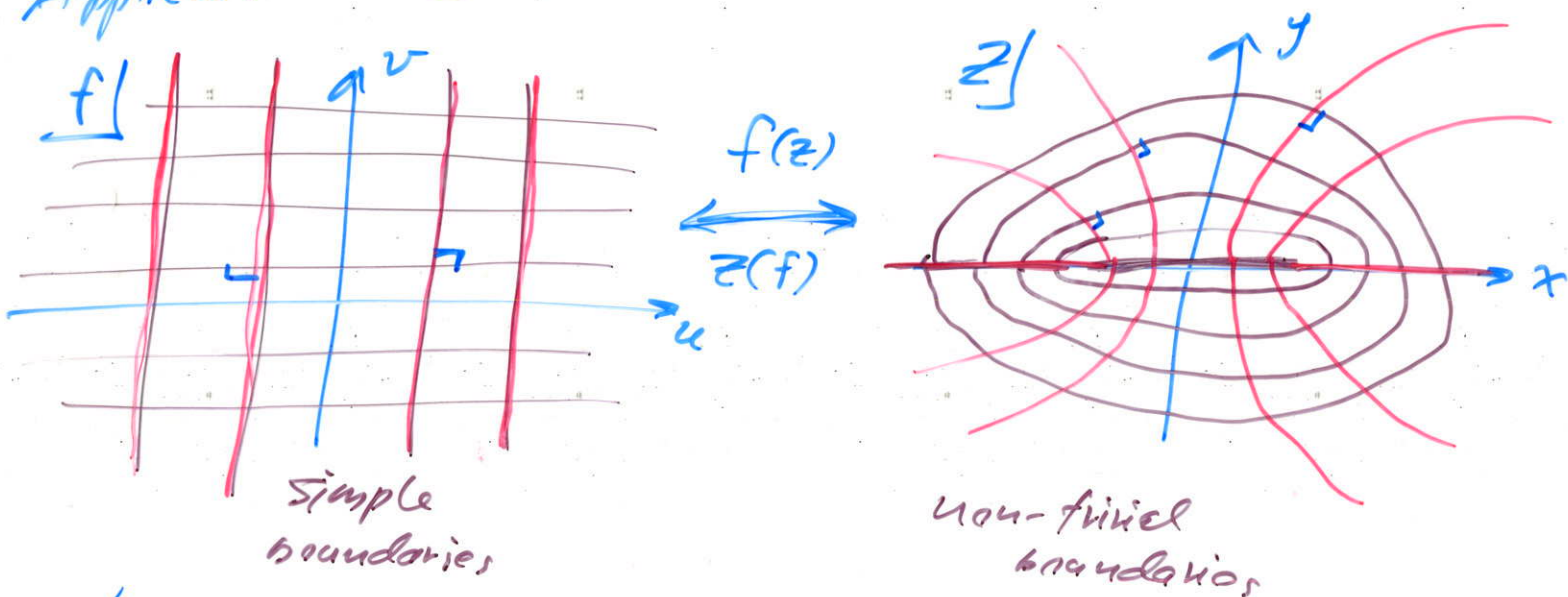 f
v
u
f(z)
z(f)
z
y
x
simple
boundaries
non-trivial
boundaries